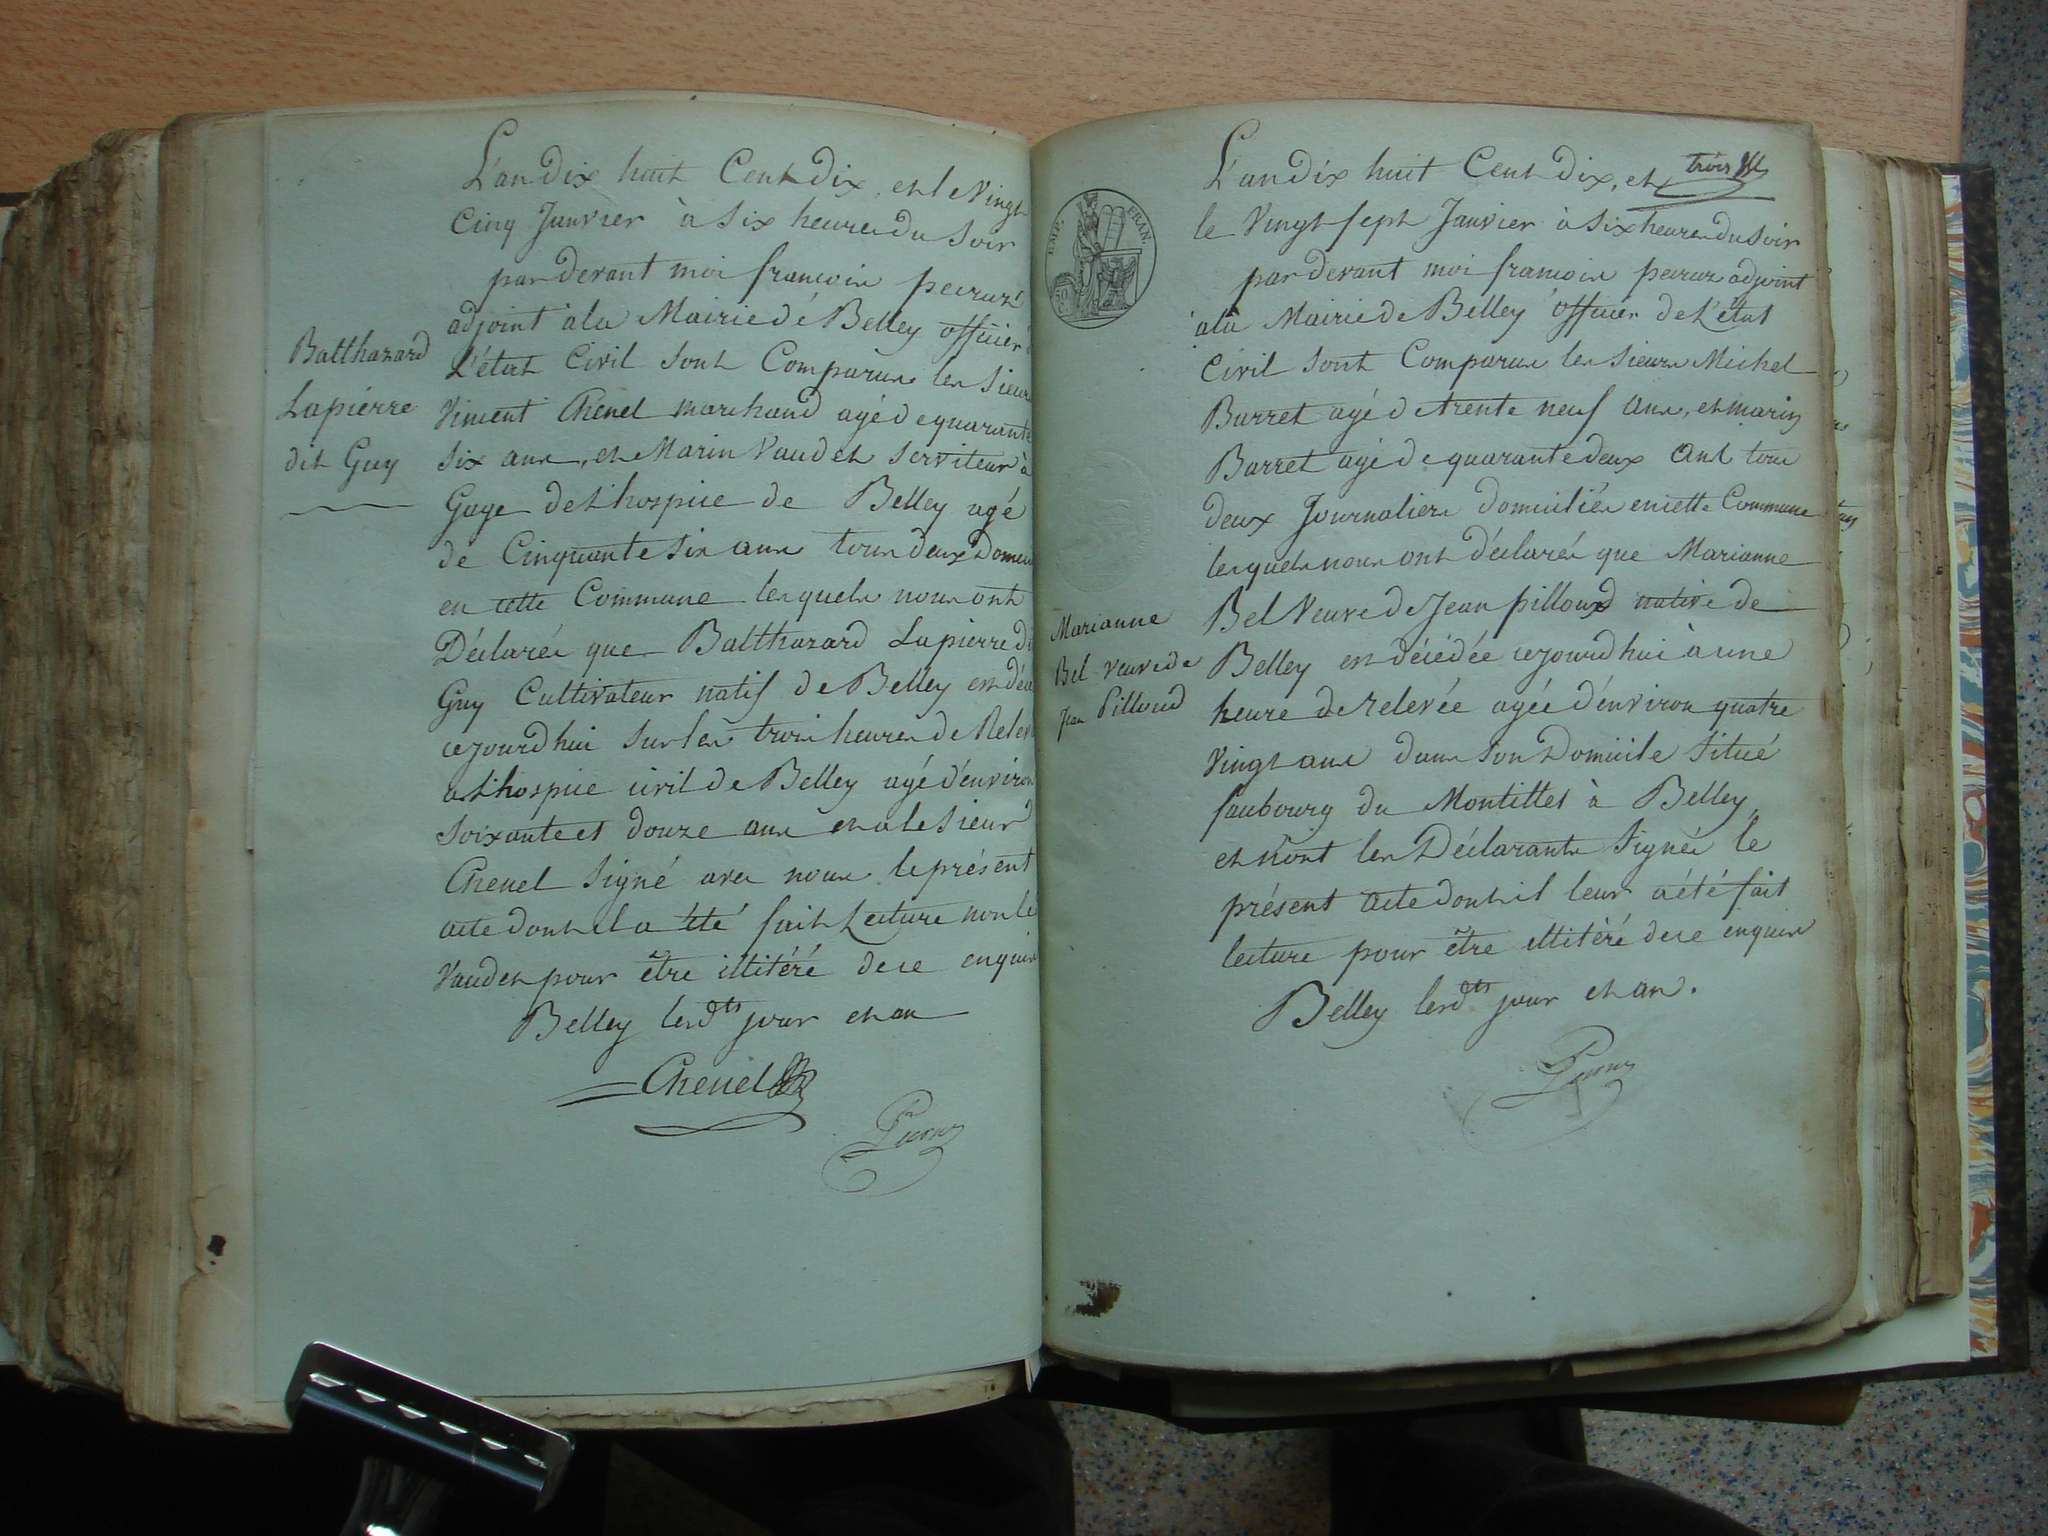 L'an dix huit Cent dix, et le vingt
Cinq Janvier à six heures du soir
par devant moi francois peiruz
adjoint à la Mairie dé Belley officier d
L'état Civil sont Comparus les sieurs
Vincent Chenel marchand agé de quarante
six ans, et Marin Vaudet serviteur à
Gage de L'hospice de Belley agé
de Cinquante six ans tous deux Domici
en cette Commune lesquels nous ont
Déclarés que Balthazard Lapierre di
Guy Cultivateur natif de Belley est déce
cejourdhui sur les trois heures de Relev
a L'hospice civil de Belley agé d'environ
soixante et douze ans et a le sieur
Chenel signé avec nous le présent
acte dont il a été fait Lecture non le
Vaudet pour être illitéré de ce enquis
Belley lesdts jour et an
Chenel
Balthazard
Lapierre
dit Guy
L'an dix huit Cent dix, et trois
le vingt sept Janvier à six heures du soir
par devant moi francois peiruz adjoint
à la Mairie de Belley officier de L'état
Civil sont Comparus les sieurs Michel
Burret agé de trente neuf ans, et marin
Barret agé de quarante deux ans tous
deux Journaliers domiciliés en cette Commune
lesquels nous ont déclarés que Marianne
Bel Veuve de Jean pilloud native de
Belley est décédée cejourdhui à une
heure de relevée agée d'environ quatre
vingt ans dans son Domicile situé
faubourg du Montillet à Belley
et n'ont les Déclarants signés le
présent acte dont il leur a été fait
lecture pour être illitéré de ce enquis
Belley lesdts jour et an.
EMP. FRAN.
50
Marianne
Bel veuve de
Jean Pilloud